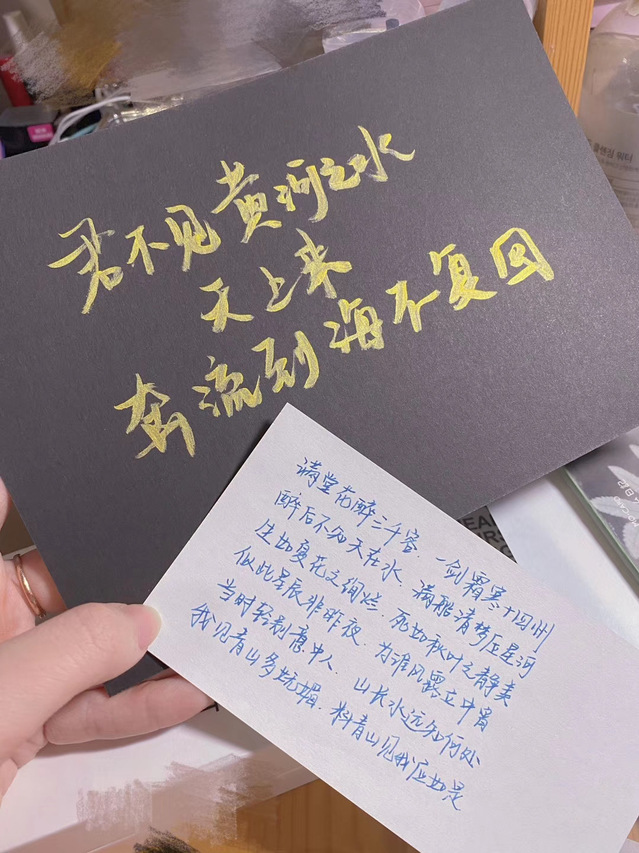 君不见黄河之水
天上来
奔流到海不复回
满堂花醉三千客.一剑霜寒十四州
醉后不知天在水 满船清梦压星河
生如夏花之绚烂.死如秋叶之静美
似此星辰非昨夜.为谁风露立中宵
当时轻别意中人.山长水远知何处
我见青山多妩媚.料青山见我应如是
클렌징 워터